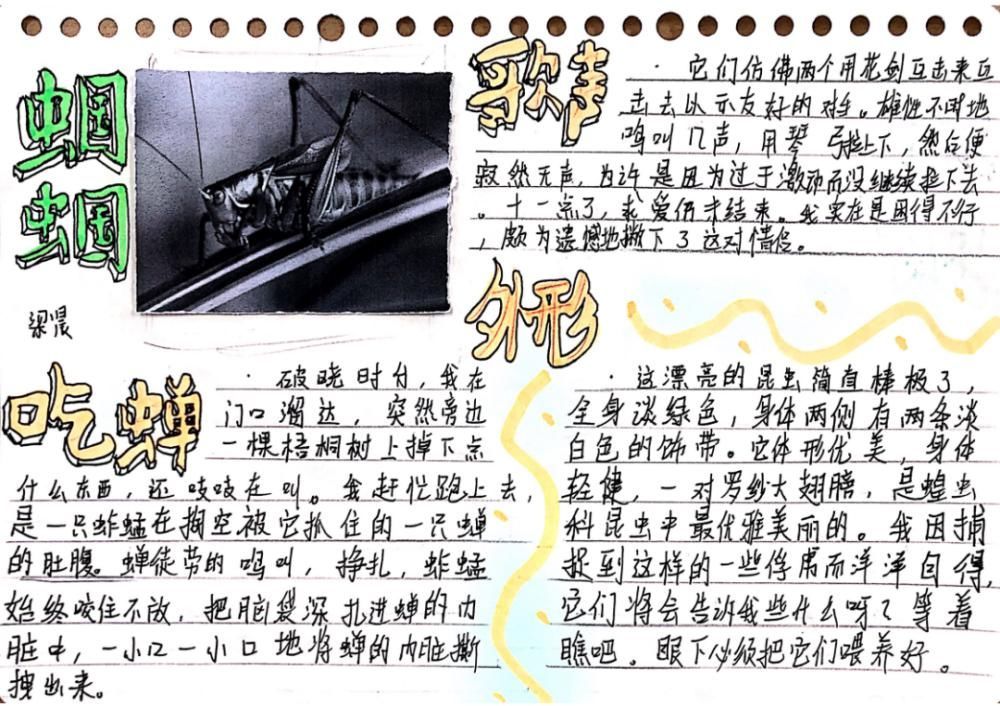 蝈
蝈
梁晨
歌声
它们仿佛两个用花剑互击来互
击去以示友好的对手。雄性不时地
鸣叫几声,用琴弓拉上下,然后便
寂然无声,为许是因为过于激动而没继续拉下去
。十一点了,求爱仍未结束。我实在是困得不行
,颇为遗憾地撇下了这对情侣。
外形
这漂亮的昆虫简直棒极了,
全身淡绿色,身体两侧有两条淡
白色的饰带。它体形优美,身体
轻健,一对罗纱大翅膀,是蝗虫
科昆虫中最优雅美丽的。我因捕
捉到这样的一些俘虏而洋洋自得,
它们将会告诉我些什么呀?等着
瞧吧。眼下必须把它们喂养好。
吃蝉
破晓时分,我在
门口溜达,突然旁边
一棵梧桐树上掉下点
什么东西,还吱吱在叫。我赶忙跑上去,
是一只蚱蜢在掏空被它抓住的一只蝉
的肚腹。蝉徒劳的鸣叫,挣扎,蚱蜢
始终咬住不放,把脑袋深扎进蝉的内
脏中,一小口一小口地将蝉的内脏撕
拽出来。